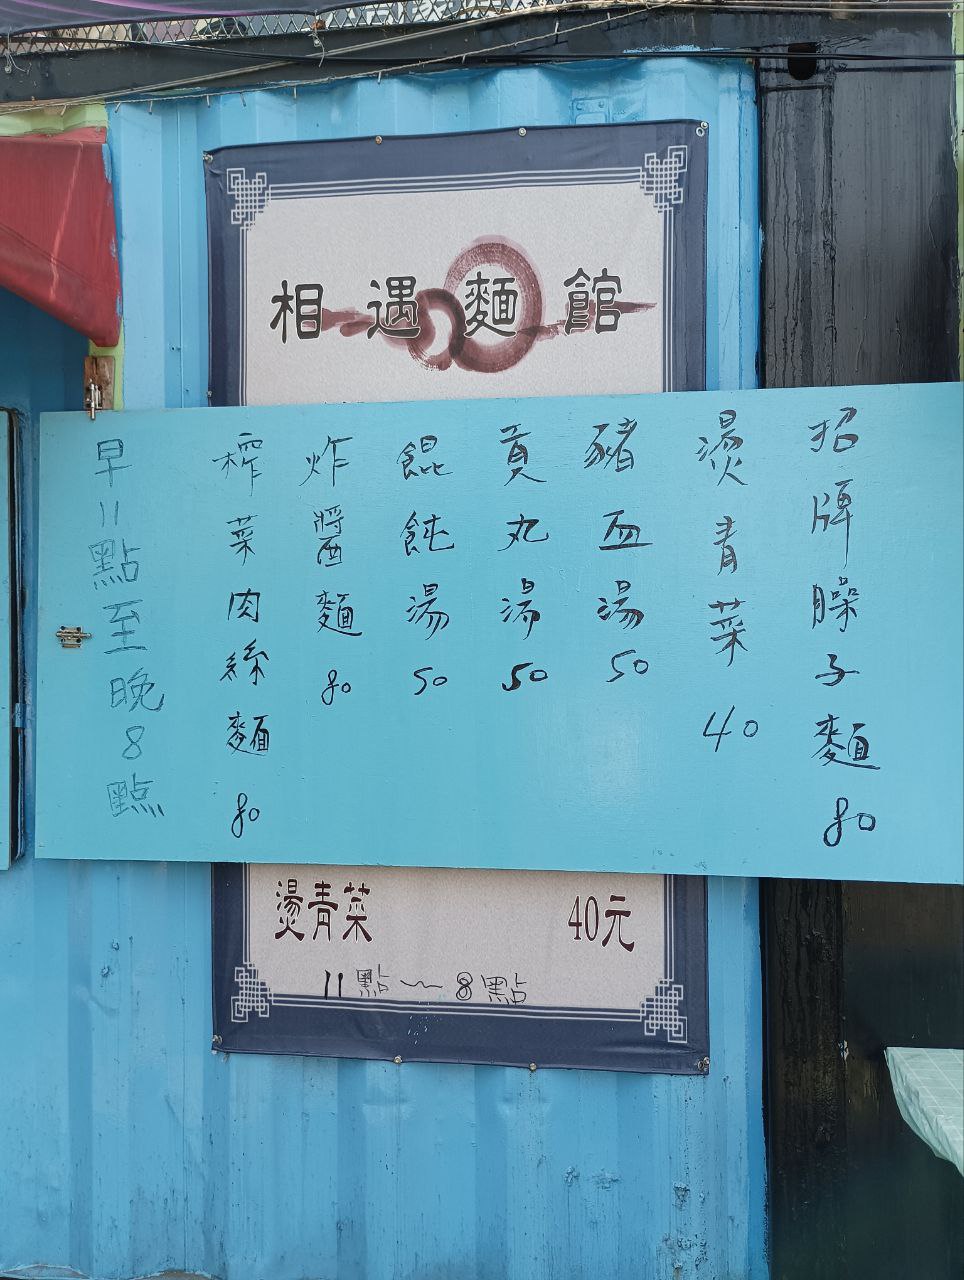 相遇麵館
招牌臊子麵 80
燙青菜 40
豬血湯 50
貢丸湯 50
餛飩湯 50
炸醬麵 80
榨菜肉絲麵 80
早11點至晚8點
燙青菜 40元
11點～8點